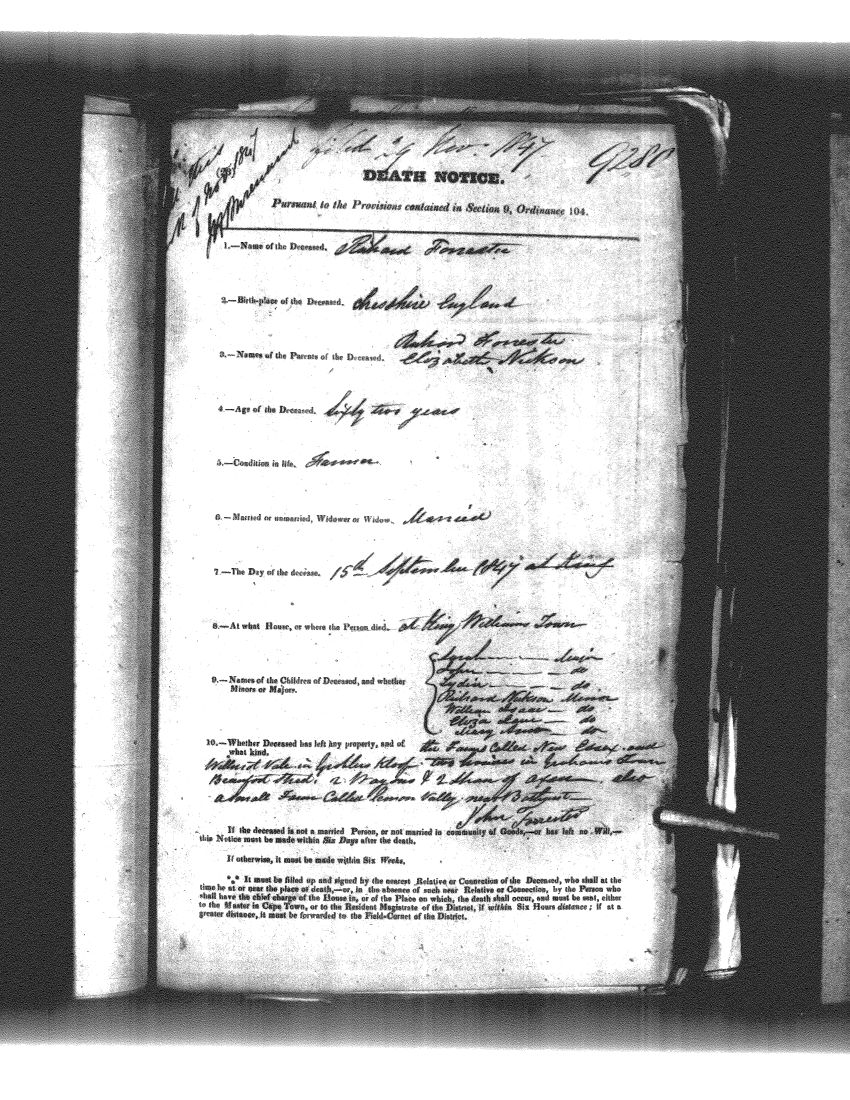 filed 29 Nov. 1847.
9280
DEATH NOTICE.
Pursuant to the Provisions contained in Section 9, Ordinance 104.
1.—Name of the Deceased. Richard Forrester
2.—Birth-place of the Deceased. Cheshire England
Richard Forrester
3.—Names of the Parents of the Deceased. Elizabeth Nickson
4.—Age of the Deceased. Sixty two years
5.—Condition in life. Farmer
6.—Married or unmarried, Widower or Widow. Married
7.—The Day of the decease. 15th September 1847 at King
8.—At what House, or where the Person died. at King Williams Town
Major
do
9.—Names of the Children of Deceased, and whether Lydia do
Minors or Majors. Richard Nickson Minor
William Isaac do
Eliza do
Mary do
10.—Whether Deceased has left any property, and of the Farms Called New Essex and
what kind.
Vale in Kloof two houses in Grahams Town
Beaufort Street 2 Waggons & 2 Span of oxen also
a small Farm Called Lemon Valley near Bathurst
John Forrester
If the deceased is not a married Person, or not married in community of Goods,—or has left no Will,—
this Notice must be made within Six Days after the death.
If otherwise, it must be made within Six Weeks.
*** It must be filled up and signed by the nearest Relative or Connection of the Deceased, who shall at the
time be at or near the place of death,—or, in the absence of such near Relative or Connection, by the Person who
shall have the chief charge of the House in, or of the Place on which, the death shall occur, and must be sent, either
to the Master in Cape Town, or to the Resident Magistrate of the District, if within Six Hours distance; if at a
greater distance, it must be forwarded to the Field-Cornet of the District.